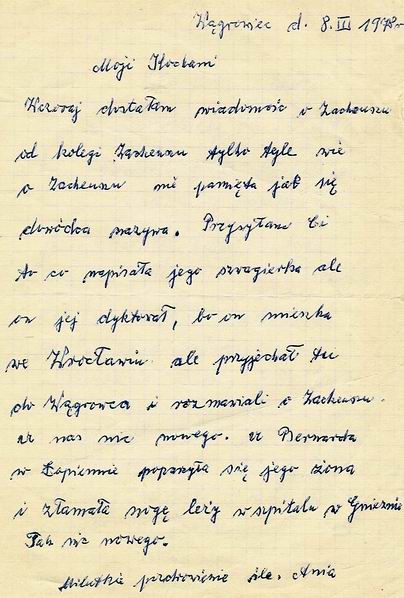 Wągrowiec d. 8.III 1978r
Moji Kochani
Wczoraj dostałam wiadomość o Zacheuszu
od kolegi Zacheusza tylko tyle wie
o Zacheuszu nie pamięta jak się
dowódca nazywa. Przysyłam Ci
to co napisała jego szwagierka ale
on jej dyktował, bo on mieszka
we Wrocławiu ale przyjechał tu
do Wągrowca i rozmawiali o Zacheuszu.
U nas nic nowego. U Bernarda
w Łopiennie poparzyła się jego żona
i złamała nogę leży w szpitalu w Gnieźnie
Tak nic nowego.
Milutkie pozdrowienie śle. Ania